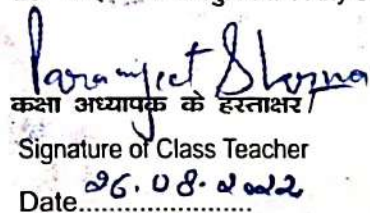 Paramjeet Sharma
कक्षा अध्यापक के हस्ताक्षर/
Signature of Class Teacher
Date 26.08.2022